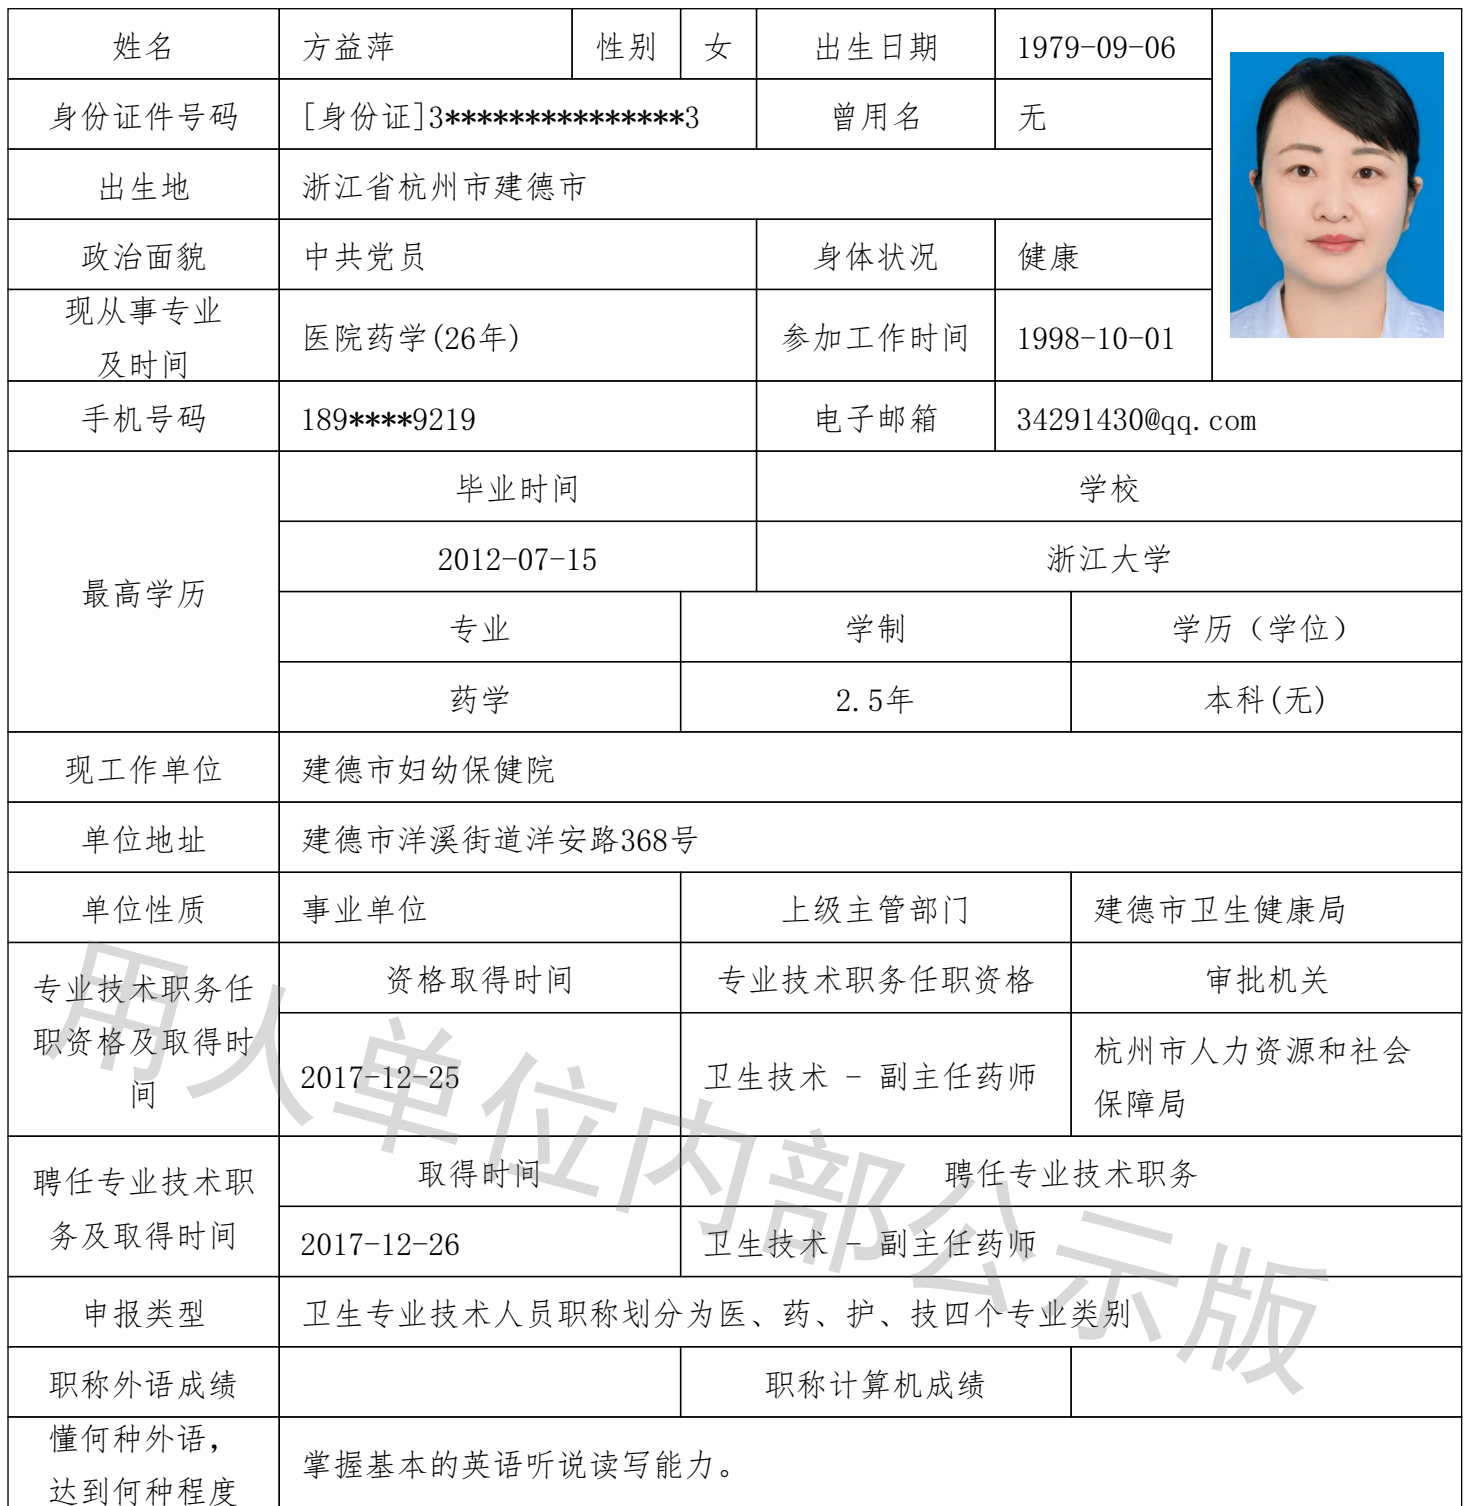 姓名 方益萍 性别 女 出生日期 1979-09-06
身份证件号码 [身份证]3***************3 曾用名 无
出生地 浙江省杭州市建德市
政治面貌 中共党员 身体状况 健康
现从事专业
及时间
医院药学(26年) 参加工作时间 1998-10-01
手机号码 189****9219 电子邮箱 34291430@qq.com
最高学历
毕业时间 学校
2012-07-15 浙江大学
专业 学制 学历（学位）
药学 2.5年 本科(无)
现工作单位 建德市妇幼保健院
单位地址 建德市洋溪街道洋安路368号
单位性质 事业单位 上级主管部门 建德市卫生健康局
专业技术职务任
职资格及取得时
间
资格取得时间 专业技术职务任职资格 审批机关
2017-12-25 卫生技术 - 副主任药师 杭州市人力资源和社会
保障局
聘任专业技术职
务及取得时间
取得时间 聘任专业技术职务
2017-12-26 卫生技术 - 副主任药师
申报类型 卫生专业技术人员职称划分为医、药、护、技四个专业类别
职称外语成绩 职称计算机成绩
懂何种外语，
达到何种程度
掌握基本的英语听说读写能力。
用人单位内部公示版